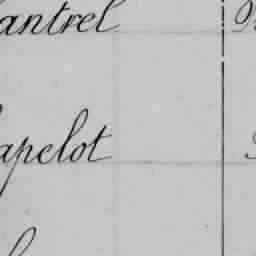 antrel
apelot